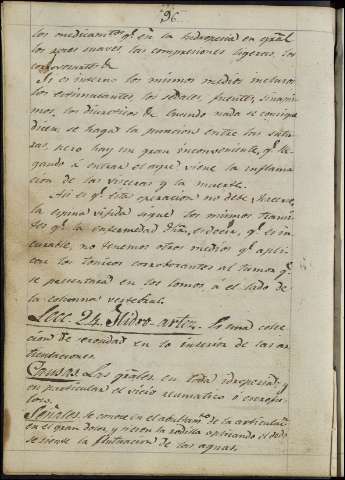 96.
los medicamtos qe en la hidropesia en gral
los ayres suaves, las compresiones ligeras, los
corroborantes &
Si es interno los mismos medios
los estimulantes, los sedales, fuentes,
mos, los diureticos & cuando nada se consigue
dicen se haga la puncion entre las sutu-
ras, pero hay un gran inconveniente, qe lle-
gando á entrar el ayre viene la inflama-
cion de las visceras y la muerte.
Asi es qe esta operacion no debe hacerse
la espina vifida sigue los mismos
tes qe la enfermedad dha, es decir, qe es in-
curable, no tenemos otros medios qe apli-
car los tonicos corroborantes al tumor qe
se presentará en los lomos, ó el lado de
la columna vertebral.
Lecc. 24. Hidro-artros. Es una colec-
cion de serosidad en lo interior de las ar-
ticulaciones.
Causas. Las grales en toda idropesia, y
en particular el vicio reumatico ó escrofu-
loso.
Señales. Se conoce en el abultamto de la articulacn
en el gran dolor, y si es en la rodilla aplicando el dedo
se siente la fluctuacion de las aguas.